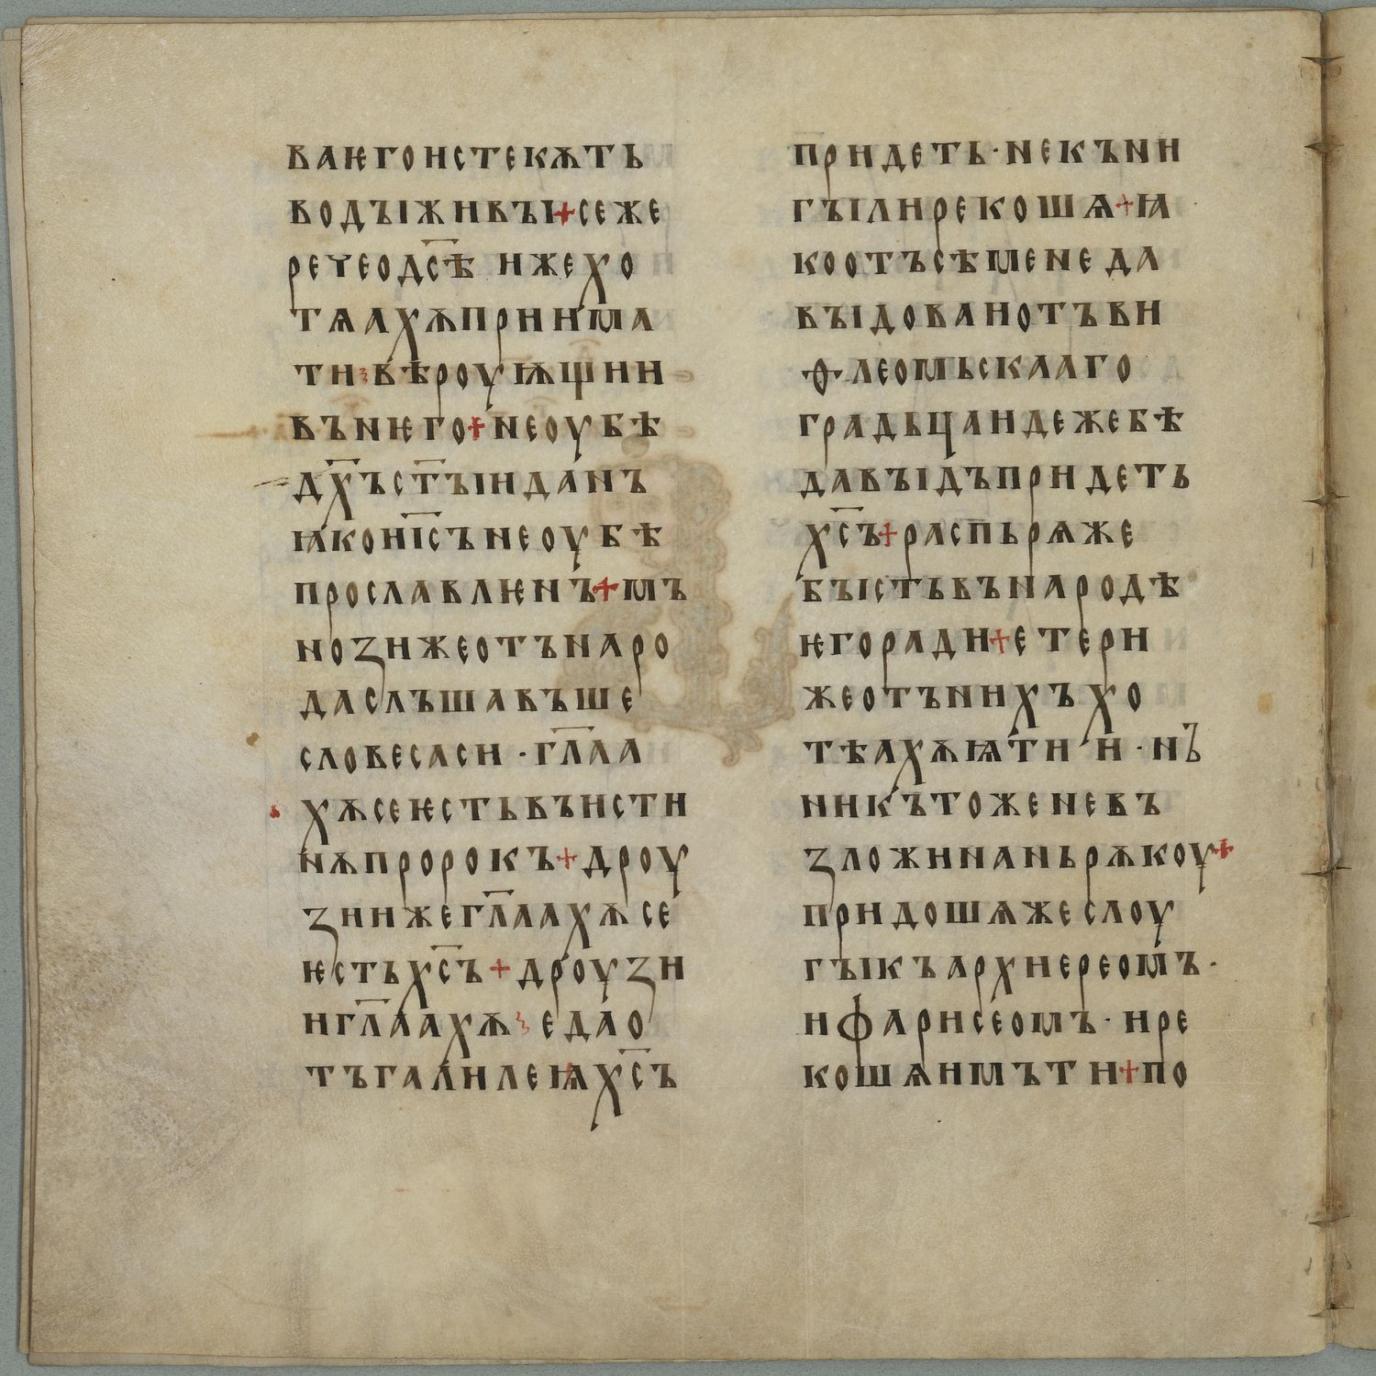 ваѥгоистекѫть
водꙑживꙑ+сеже
речеодс҃ѣ ижехо
тѧахѫприима
тивѣроуѭщии
въ нѥго+неоубѣ
дх҃ъст҃ꙑиданъ
ꙗкоиі҃съ не оубѣ
прославлѥнъ+мъ
ноꙁижеотънаро
даслъшавъше
словесаси · гл҃аа
хѫсеѥстьвъисти
нѫпророкъ+дроу
ꙁиижегл҃аахѫ се
ѥстьхс҃ъ+дроуꙁи
игл҃аахѫ едао
тъгалилеѩхс҃ъ
придеть·некъни
гꙑлирекошѧ+ꙗ
коотъсѣменеда
вꙑдоваиотъви
ѳ·леомьскааго
градьцаидежебѣ
давꙑдъпридеть
хс҃ъ+распьрѧже
бꙑстьвънародѣ
ѥгоради+етери
жеотънихъхо
тѣахѫѩти и·нъ
никътоженевъ
ꙁложинаньрѫкоу+
придошѧжеслоу
гꙑкъархиереомъ·
ифарисеомъ·ире
кошѧимъти+по